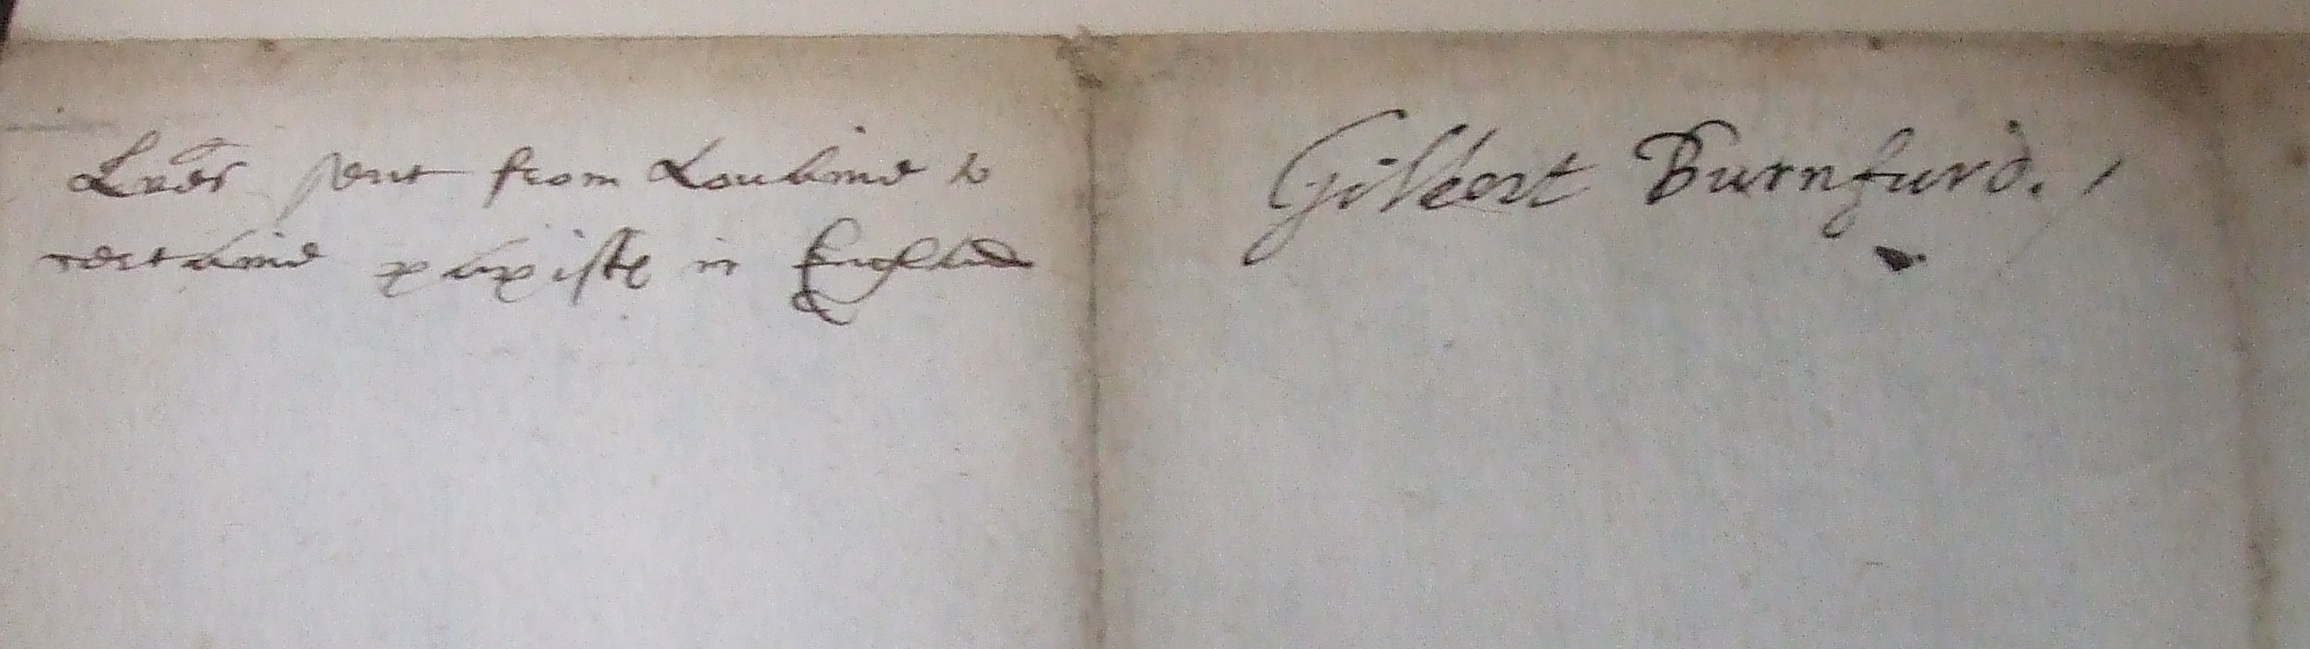 Lr̃es sent from Louaine to
certaine papistes in England
Gilbert Burnfurd.